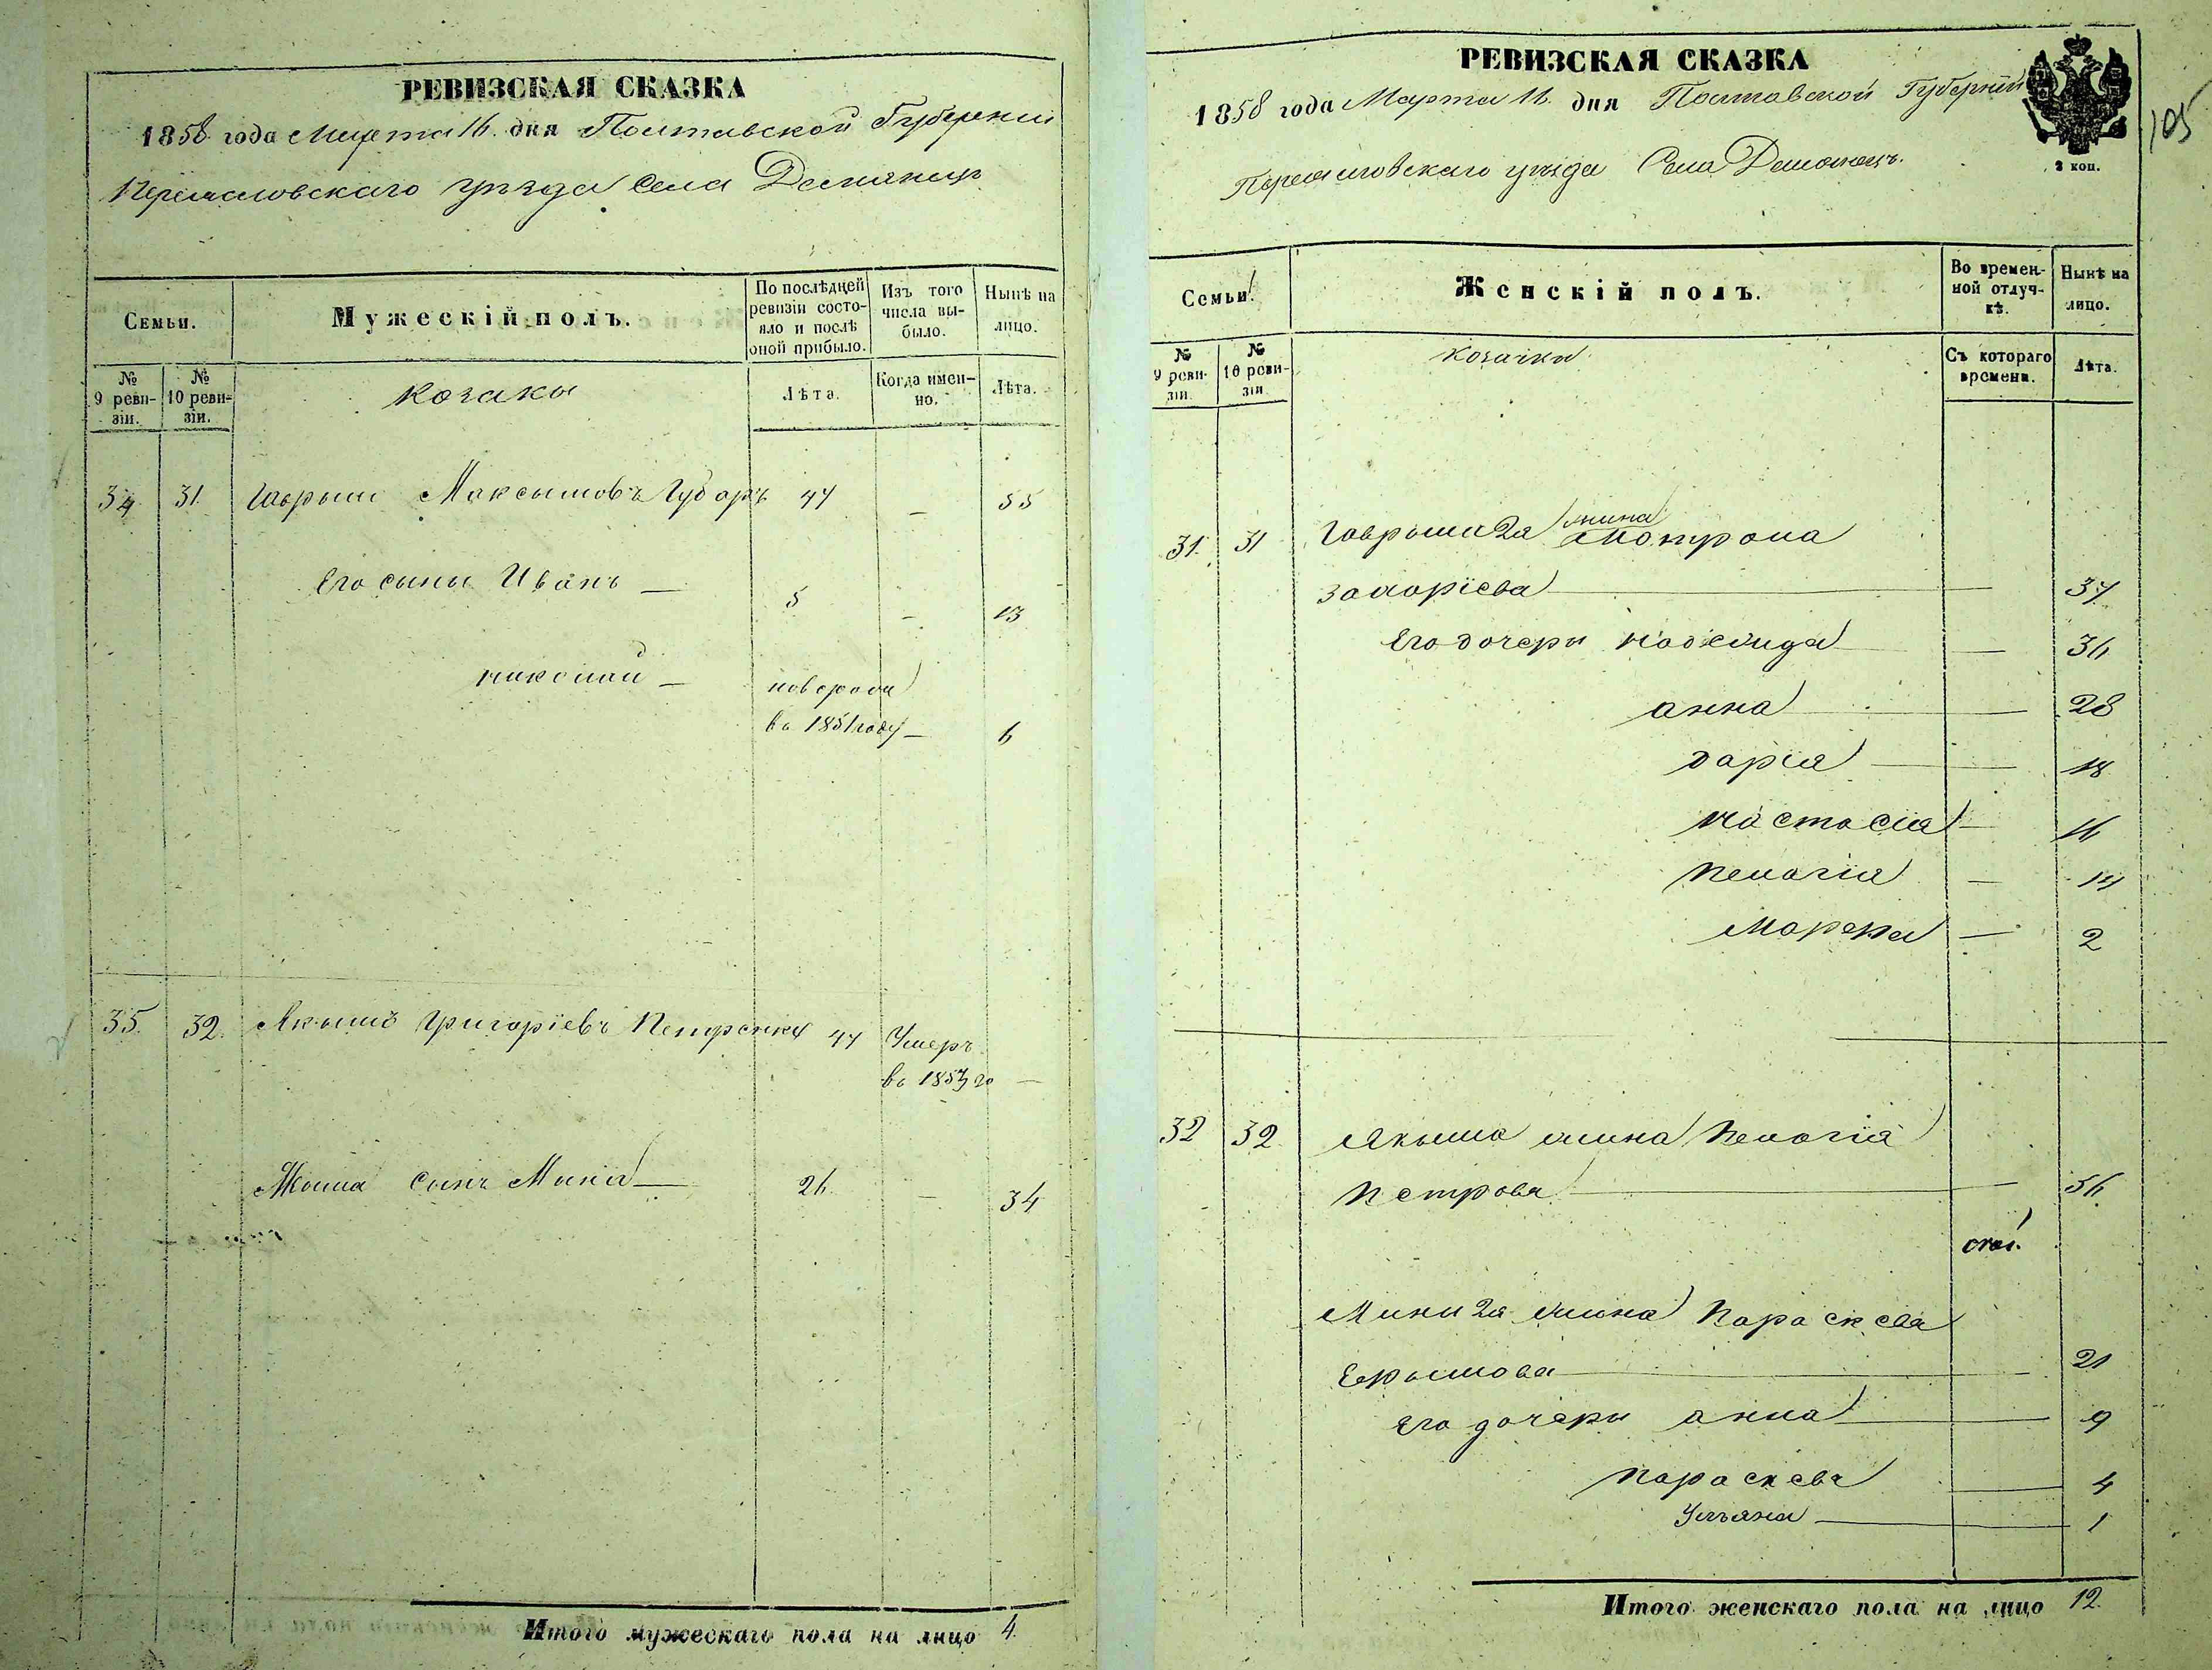 РЕВИЗСКАЯ СКАЗКА
1858 года Марта 16. дня Полтавской Губерніи
Переяславскаго уѣзда Села Демянецъ
Семьи.
Мужескій полъ.
По послѣдней ревизіи состояло и послѣ оной прибыло.
Изъ того числа выбыло.
Нынѣ на лицо.
№ 9 ревизіи.
№ 10 ревизіи.
козаки
Лѣта.
Когда именно.
Лѣта.
34 31 Гаврыло Максымовъ Губаръ 47 – 55
Его сыны Иванъ – 5 – 13
николай – новорож
въ 1851 году – 6
35. 32. Якымъ Григоріевъ Петренко 47 Умеръ
въ 1857 го –
Якыма сынъ Мина – 26. – 34
Итого мужескаго пола на лицо 4.
РЕВИЗСКАЯ СКАЗКА
1858 года Марта 16. дня Полтавской Губерніи
Переяславскаго уѣзда Села Демянецъ.
3 коп.
105
Семьи.
Женскій полъ.
Во временной отлучкѣ.
Нынѣ на лицо.
№ 9 ревизіи.
№ 10 ревизіи.
козачки
Съ котораго времени.
Лѣта.
31. 31 Гаврыла 2я жина Мотрона
захоріева – 37
Его дочери надежида – 36
анна – 28
дарія – 18
настасія – 16
пелагія – 14
Марфа – 2
32 32. Якыма жина пелагія
петрова – 56
Мины 2я жина параскева
Ефрымова – 21
Его дочери анна – 9
параскева – 4
Ульяна – 1
Итого женскаго пола на лицо 12.